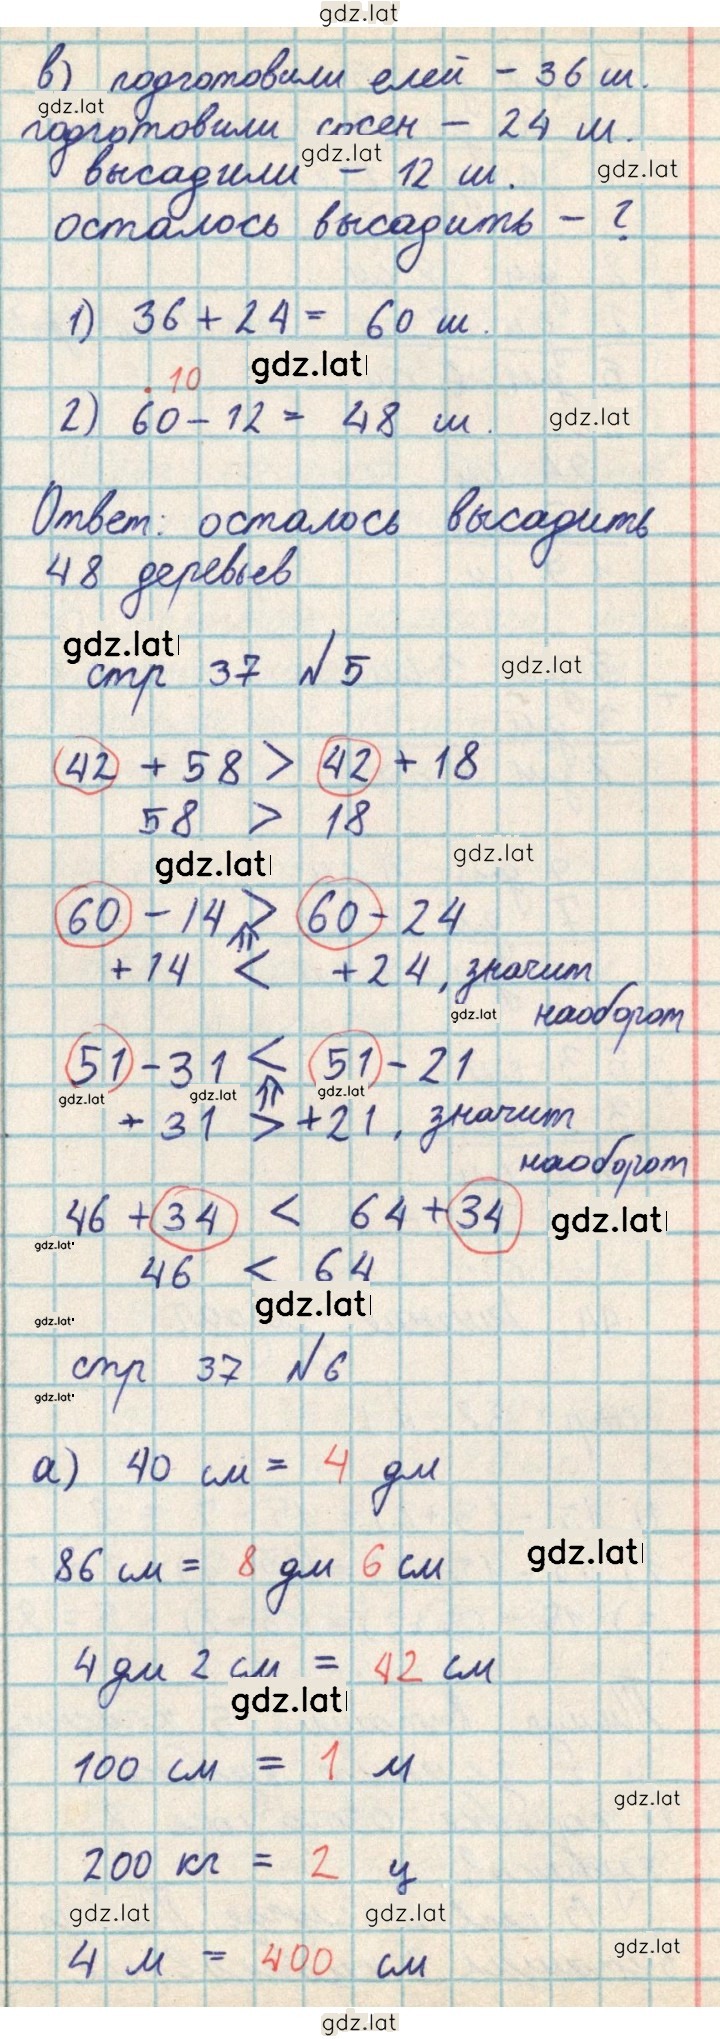 gdz.lat
в) подготовили елей - 36 ш.
gdz.lat
подготовили сосен - 24 ш.
gdz.lat
высадили - 12 ш.
gdz.lat
осталось высадить - ?
1) 36 + 24 = 60 ш.
gdz.lat
. 10
2) 60 - 12 = 48 ш.
gdz.lat
Ответ: осталось высадить
48 деревьев
gdz.lat
стр 37 №5
gdz.lat
42 + 58 > 42 + 18
58 > 18
gdz.lat
gdz.lat
60 - 14 > 60 - 24
⇑
+ 14 < + 24, значит
gdz.lat
наоборот
51 - 31 < 51 - 21
gdz.lat gdz.lat gdz.lat
⇑
+ 31 > + 21, значит
наоборот
46 + 34 < 64 + 34
gdz.lat
gdz.lat
46 < 64
gdz.lat
gdz.lat
стр 37 №6
gdz.lat
а) 40 см = 4 дм
gdz.lat
86 см = 8 дм 6 см
4 дм 2 см = 42 см
gdz.lat
100 см = 1 м
gdz.lat
200 кг = 2 ц
gdz.lat gdz.lat
4 м = 400 см
gdz.lat
gdz.lat